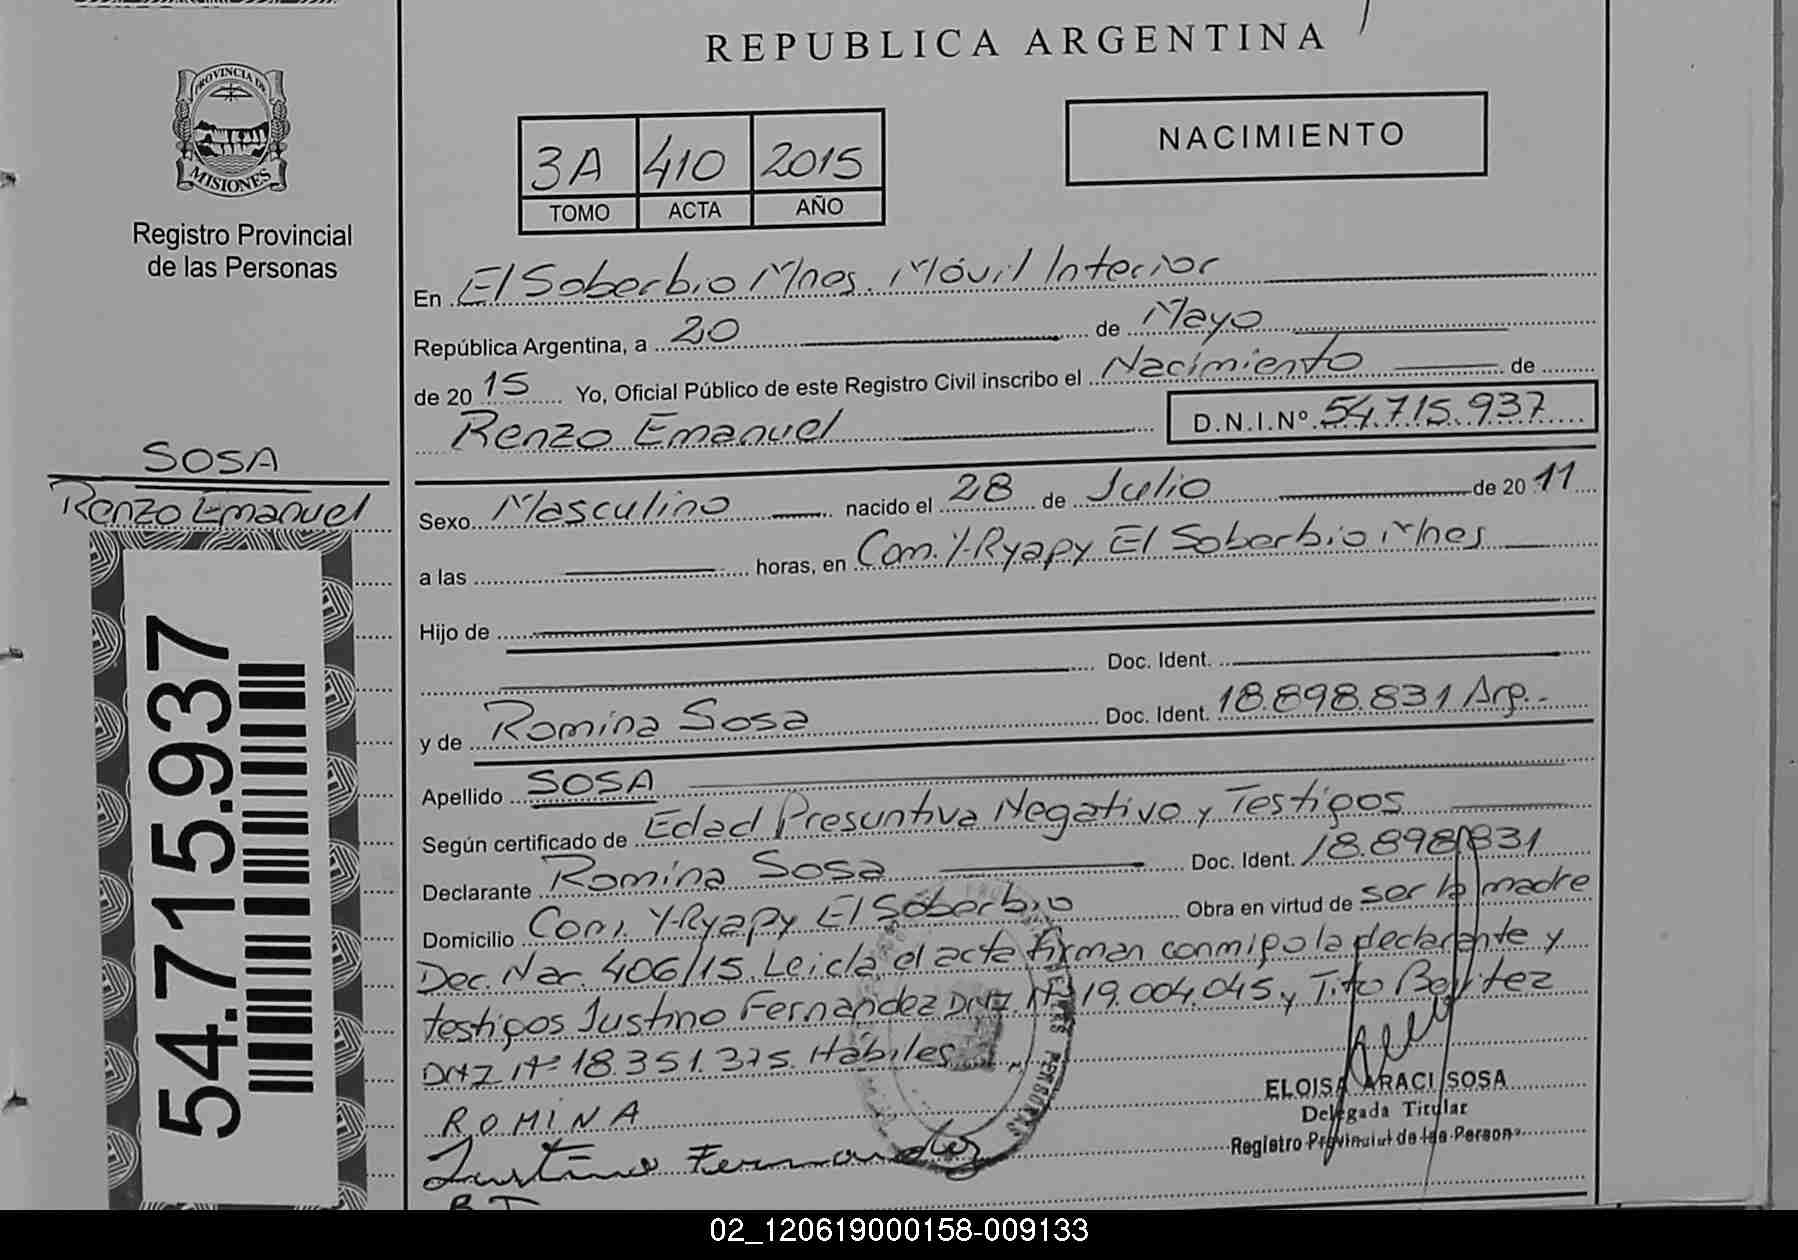 REPUBLICA ARGENTINA
PROVINCIA DE
MISIONES
Registro Provincial
de las Personas
3A 410 2015
TOMO ACTA AÑO
NACIMIENTO
En El Soberbio Mnes. Móvil Interior
República Argentina, a 20 de Mayo
de 2015 Yo, Oficial Público de este Registro Civil inscribo el Nacimiento de
Renzo Emanuel D.N.I.Nº 54.715.937
SOSA
Renzo Emanuel
54.715.937
Sexo Masculino nacido el 28 de Julio de 2011
a las horas, en Com. Y-Ryapy El Soberbio Mnes
Hijo de
Doc. Ident.
y de Romina Sosa Doc. Ident. 18.898.831 Arg.-
Apellido SOSA
Según certificado de Edad Presuntiva Negativo y Testigos
Declarante Romina Sosa Doc. Ident. 18.898.831
Domicilio Com. Y-Ryapy El Soberbio Obra en virtud de ser la madre
Dec. Nac. 406/15. Leida el acta firman conmigo la declarante y
testigos Justino Fernandez DNI Nº 19.004.045 y Tito Benitez
DNI Nº 18.351.375. Hábiles
ROMINA
Justino Fernandez
B T
ELOISA ARACI SOSA
Delegada Titular
Registro Provincial de las Personas
02_120619000158-009133